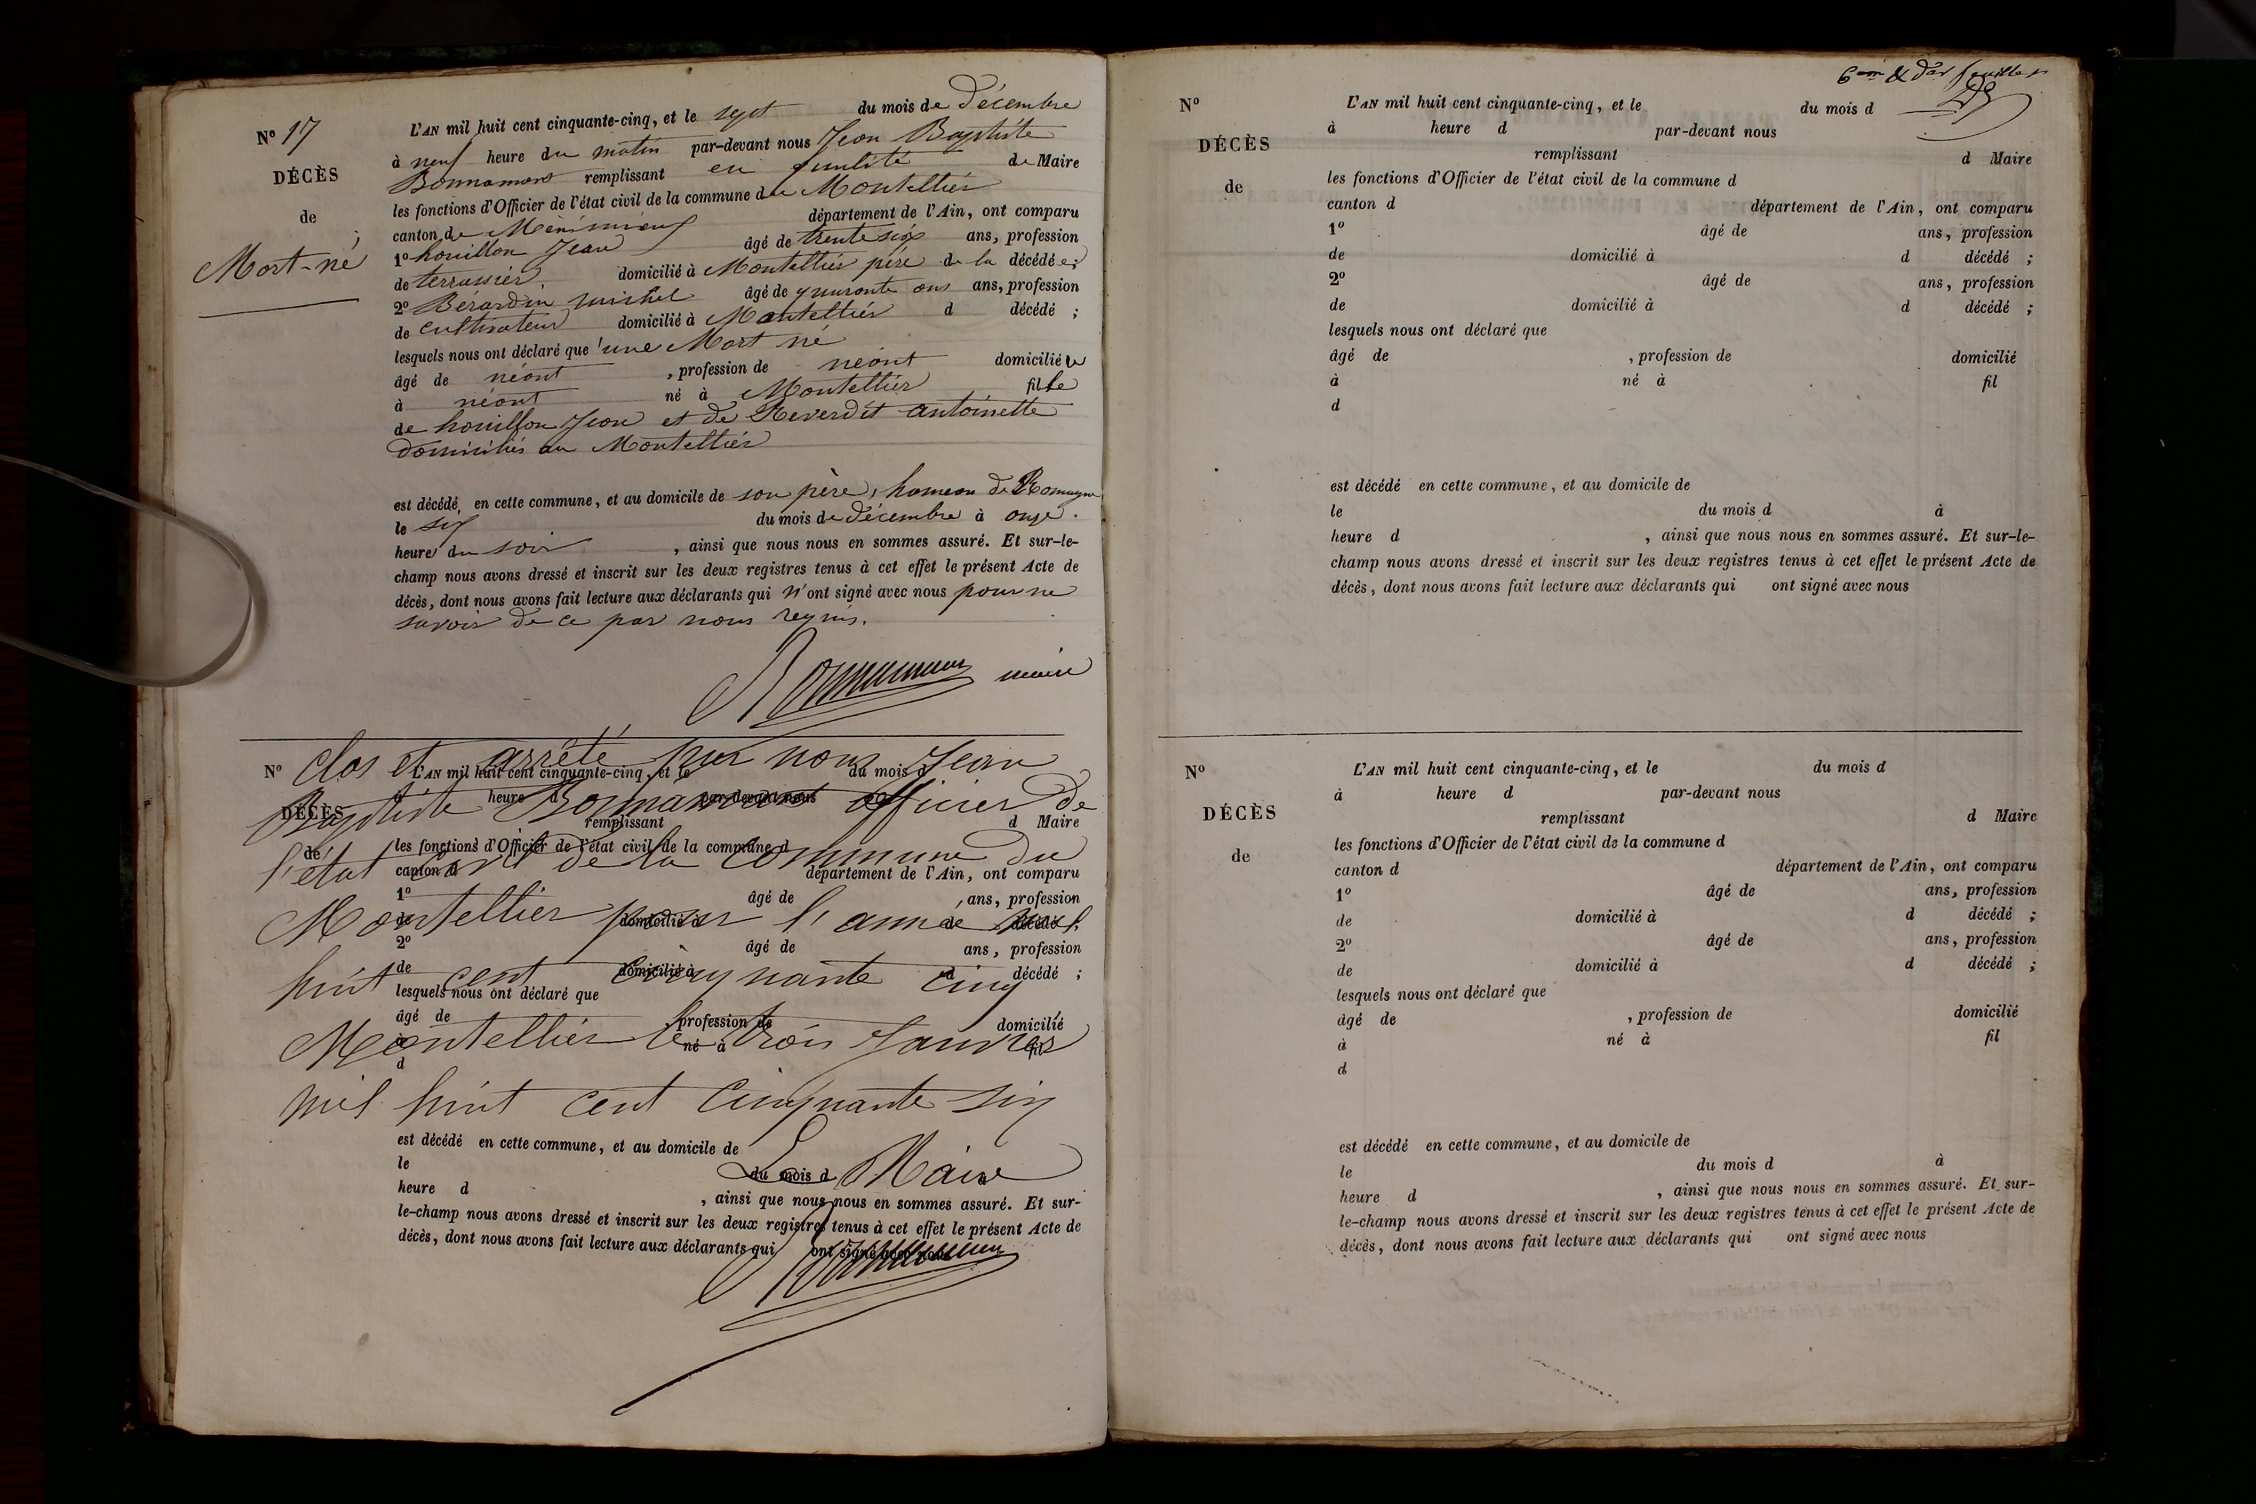 N° 17
DÉCÈS
de
Mort-né
L'AN mil huit cent cinquante-cinq, et le sept du mois de décembre
à neuf heure du matin par-devant nous Jean Baptiste
Bonnamour remplissant en qualité de Maire
les fonctions d'Officier de l'état civil de la commune du Montellier
canton de Méximieux département de l'Ain, ont comparu
1° houillon Jean âgé de trente six ans, profession
de terrassier, domicilié à Montellier père de la décédée;
2° Bérardin michel âgé de quarante ans ans, profession
de cultivateur domicilié à Montellier d décédé ;
lesquels nous ont déclaré que 'une Mort né
âgé de néant , profession de néant domicilié
à néant né à Montellier fille
de houillon Jean et de Reverdit antoinette
domiciliés au Montellier
est décédé, en cette commune, et au domicile de son père, hameau de Romagne
le six du mois de décembre à onze
heure du soir , ainsi que nous nous en sommes assuré. Et sur-le-
champ nous avons dressé et inscrit sur les deux registres tenus à cet effet le présent Acte de
décès, dont nous avons fait lecture aux déclarants qui n'ont signé avec nous pour ne
savoir de ce par nous requis.
Bonnamour maire
N°
DÉCÈS
de
L'AN mil huit cent cinquante-cinq, et le du mois d
heure d par-devant nous
remplissant d Maire
les fonctions d'Officier de l'état civil de la commune d
canton d département de l'Ain, ont comparu
1° âgé de ans, profession
de domicilié à d décédé ;
2° âgé de ans, profession
de domicilié à d décédé ;
lesquels nous ont déclaré que
âgé de profession de domicilié
à né à fil
d
est décédé en cette commune, et au domicile de
le du mois d à
heure d , ainsi que nous nous en sommes assuré. Et sur-
le-champ nous avons dressé et inscrit sur les deux registres tenus à cet effet le présent Acte de
décès, dont nous avons fait lecture aux déclarants qui ont signé avec nous
Clos et arrêté par nous Jean
Baptiste Bonnamour officier de
l'état civil de la commune du
Montellier pour l'année mil
huit cent cinquante cinq
Montellier le trois Janvier
mil huit cent cinquante six
Le Maire
Bonnamour
6em & der feuillet
N°
DÉCÈS
de
L'AN mil huit cent cinquante-cinq, et le du mois d
à heure d par-devant nous
remplissant d Maire
les fonctions d'Officier de l'état civil de la commune d
canton d département de l'Ain, ont comparu
1° âgé de ans, profession
de domicilié à d décédé ;
2° âgé de ans, profession
de domicilié à d décédé ;
lesquels nous ont déclaré que
âgé de , profession de domicilié
à né à fil
d
est décédé en cette commune, et au domicile de
le du mois d à
heure d , ainsi que nous nous en sommes assuré. Et sur-le-
champ nous avons dressé et inscrit sur les deux registres tenus à cet effet le présent Acte de
décès, dont nous avons fait lecture aux déclarants qui ont signé avec nous
N°
DÉCÈS
de
L'AN mil huit cent cinquante-cinq, et le du mois d
à heure d par-devant nous
remplissant d Maire
les fonctions d'Officier de l'état civil de la commune d
canton d département de l'Ain, ont comparu
1° âgé de ans, profession
de domicilié à d décédé ;
2° âgé de ans, profession
de domicilié à d décédé ;
lesquels nous ont déclaré que
âgé de , profession de domicilié
à né à fil
d
est décédé en cette commune, et au domicile de
le du mois d à
heure d , ainsi que nous nous en sommes assuré. Et sur-
le-champ nous avons dressé et inscrit sur les deux registres tenus à cet effet le présent Acte de
décès, dont nous avons fait lecture aux déclarants qui ont signé avec nous